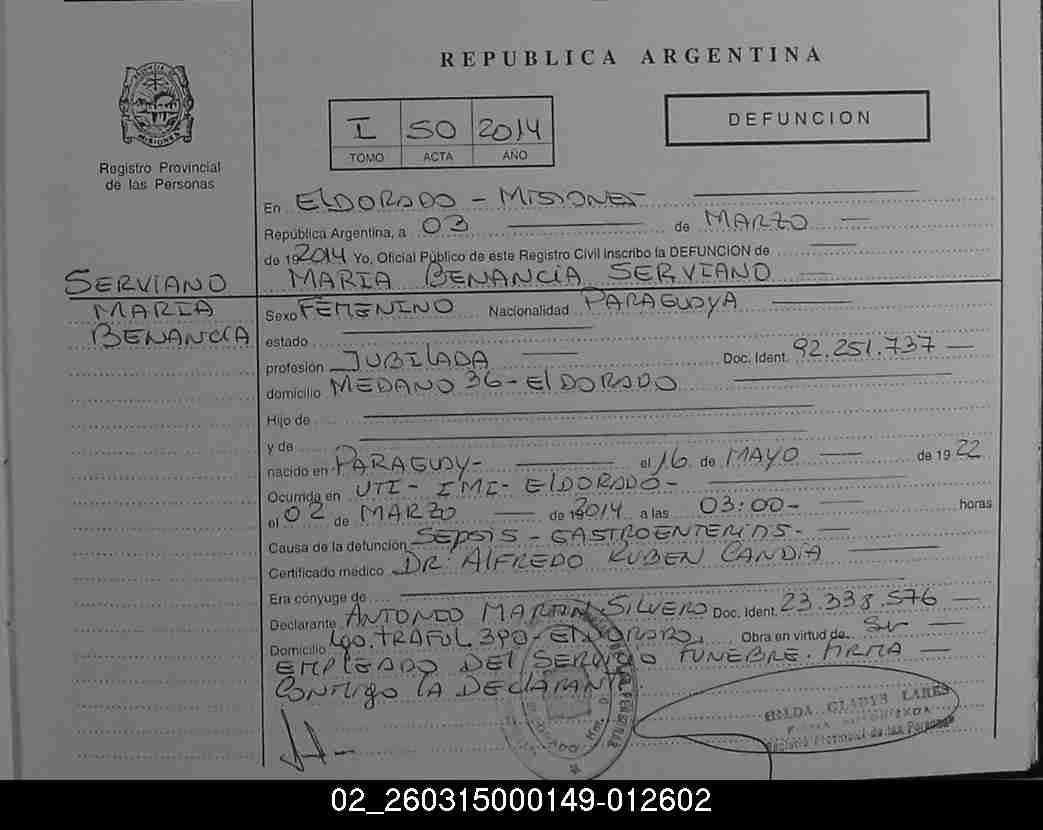 REPUBLICA ARGENTINA
PROVINCIA
MISIONES
Registro Provincial
de las Personas
I 50 2014
TOMO ACTA AÑO
DEFUNCION
En ELDORADO - MISIONES
República Argentina, a 03 de MARZO
de 19 2014 Yo, Oficial Público de este Registro Civil inscribo la DEFUNCION de
SERVIANO MARIA BENANCIA SERVIANO
MARIA
BENANCIA
Sexo FEMENINO Nacionalidad PARAGUAYA
estado
profesión JUBILADA Doc. Ident. 92.251.737
domicilio MEDANO 36 - ElDORADO
Hijo de
y de
nacido en PARAGUAY- el 16 de MAYO de 19 22
Ocurrida en UTI - IMI - ElDORADO -
el 02 de MARZO de 19 2014 a las 03:00- horas
Causa de la defunción SEPSIS - GASTROENTERITIS -
Certificado médico DR. AlFREDO RUBEN CANDIA
Era cónyuge de
Declarante ANTONIO MARTIN SILVERO Doc. Ident. 23.338.576
Domicilio lgo. TRAFUL 390 - ElDORADO, Obra en virtud de. Su
EMPLEADO DEl SERVICIO FUNEBRE. FIRMA
CONMIGO lA DEClARANTE
HILDA GLADYS LARES
FIRMA AUTORIZADA
Registro Provincial de las Personas
02_260315000149-012602